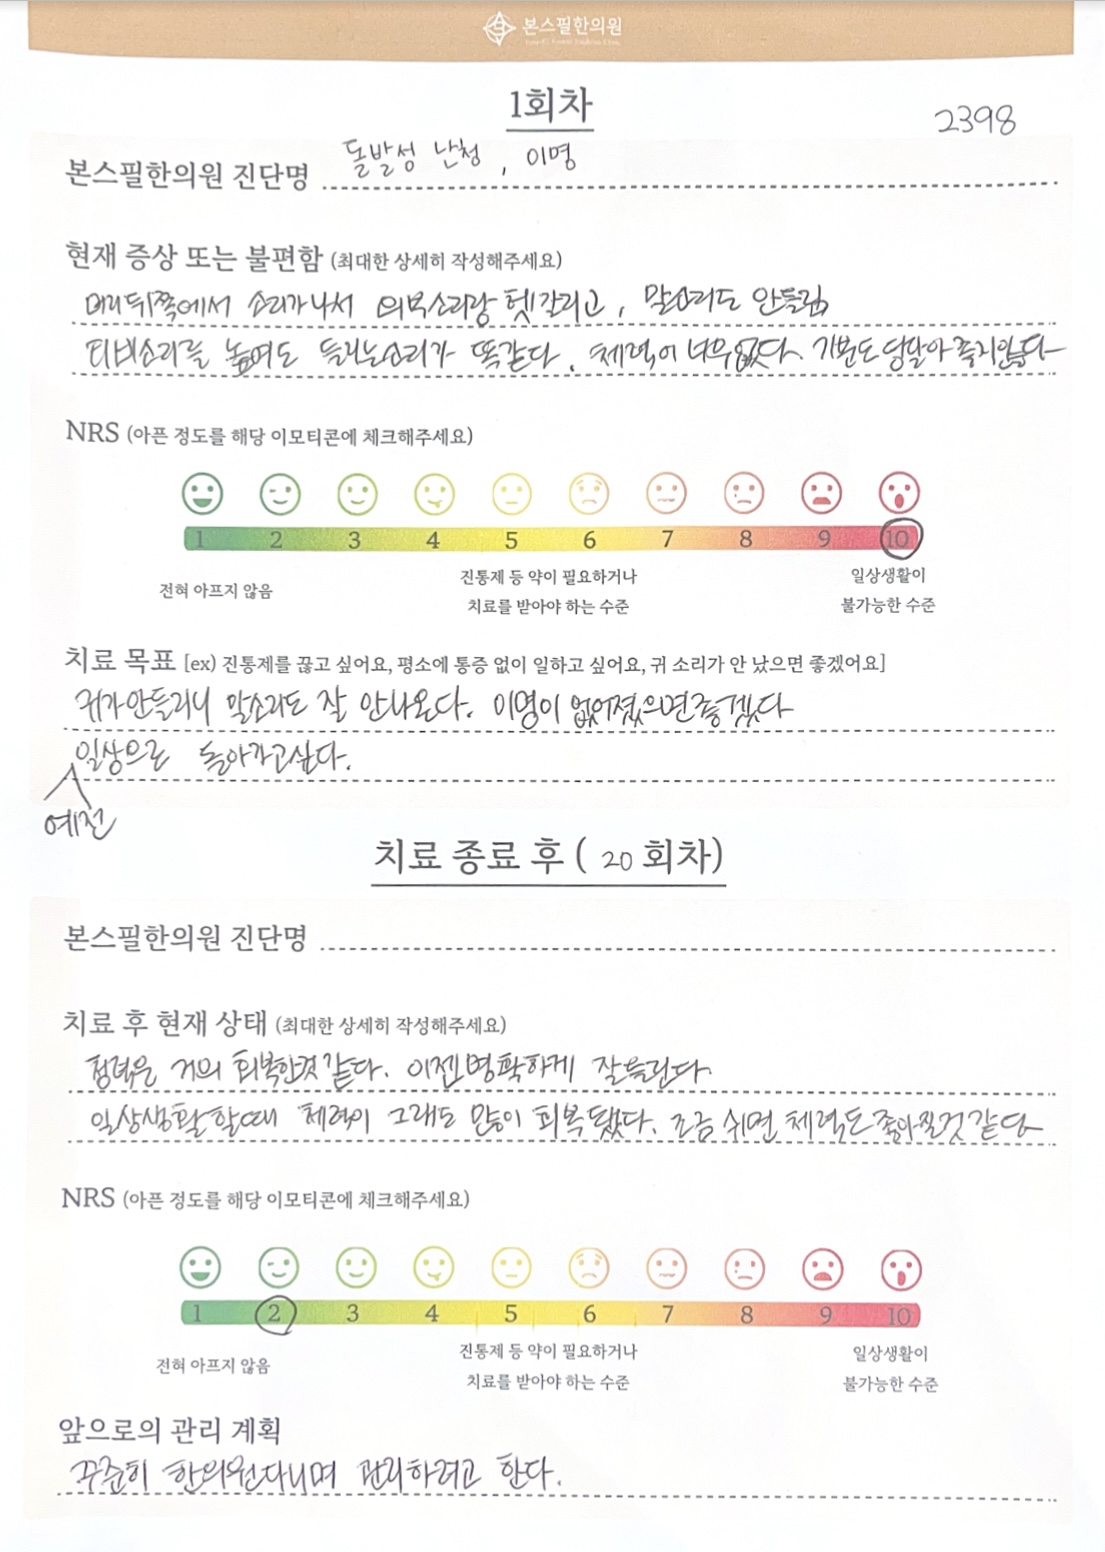 본스필한의원
1회차
2398
본스필한의원 진단명 돌발성 난청, 이명
현재 증상 또는 불편함 (최대한 상세히 작성해주세요)
머리뒤쪽에서 소리가나서 외부소리랑 헷갈리고, 말소리도 안들림
티비소리를 높여도 들리는소리가 똑같다. 체력이 너무없다. 기분도 덩달아 좋지않다
NRS (아픈 정도를 해당 이모티콘에 체크해주세요)
1 2 3 4 5 6 7 8 9 10
전혀 아프지 않음 진통제 등 약이 필요하거나 일상생활이
치료를 받아야 하는 수준 불가능한 수준
치료 목표 [ex) 진통제를 끊고 싶어요, 평소에 통증 없이 일하고 싶어요, 귀 소리가 안 났으면 좋겠어요]
귀가안들리니 말소리도 잘 안나온다. 이명이 없어졌으면좋겠다
일상으로 돌아가고싶다.
예전
치료 종료 후 ( 20 회차)
본스필한의원 진단명
치료 후 현재 상태 (최대한 상세히 작성해주세요)
청력은 거의 회복한것같다. 이젠 명확하게 잘들린다.
일상생활할때 체력이 그래도 많이 회복됐다. 조금 쉬면 체력도좋아질것 같다
NRS (아픈 정도를 해당 이모티콘에 체크해주세요)
1 2 3 4 5 6 7 8 9 10
전혀 아프지 않음 진통제 등 약이 필요하거나 일상생활이
치료를 받아야 하는 수준 불가능한 수준
앞으로의 관리 계획
꾸준히 한의원다니며 관리하려고 한다.